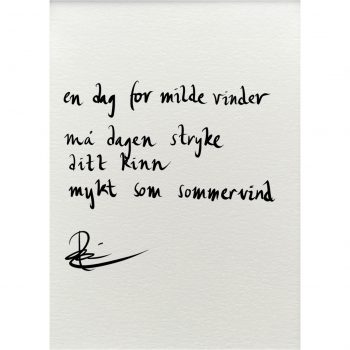 en dag for milde vinder
må dagen stryke
ditt kinn
mykt som sommervind